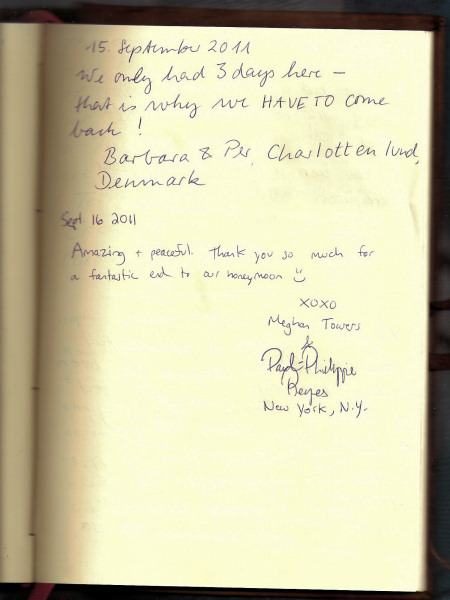 15. September 2011
We only had 3 days here –
that is why we HAVE TO come
back !
Barbara & Per, Charlottenlund,
Denmark
Sept. 16 2011
Amazing + peaceful. Thank you so much for
a fantastic end to our honeymoon
XOXO
Meghan Towers
&
Philippe
Reyes
New York, N.Y.